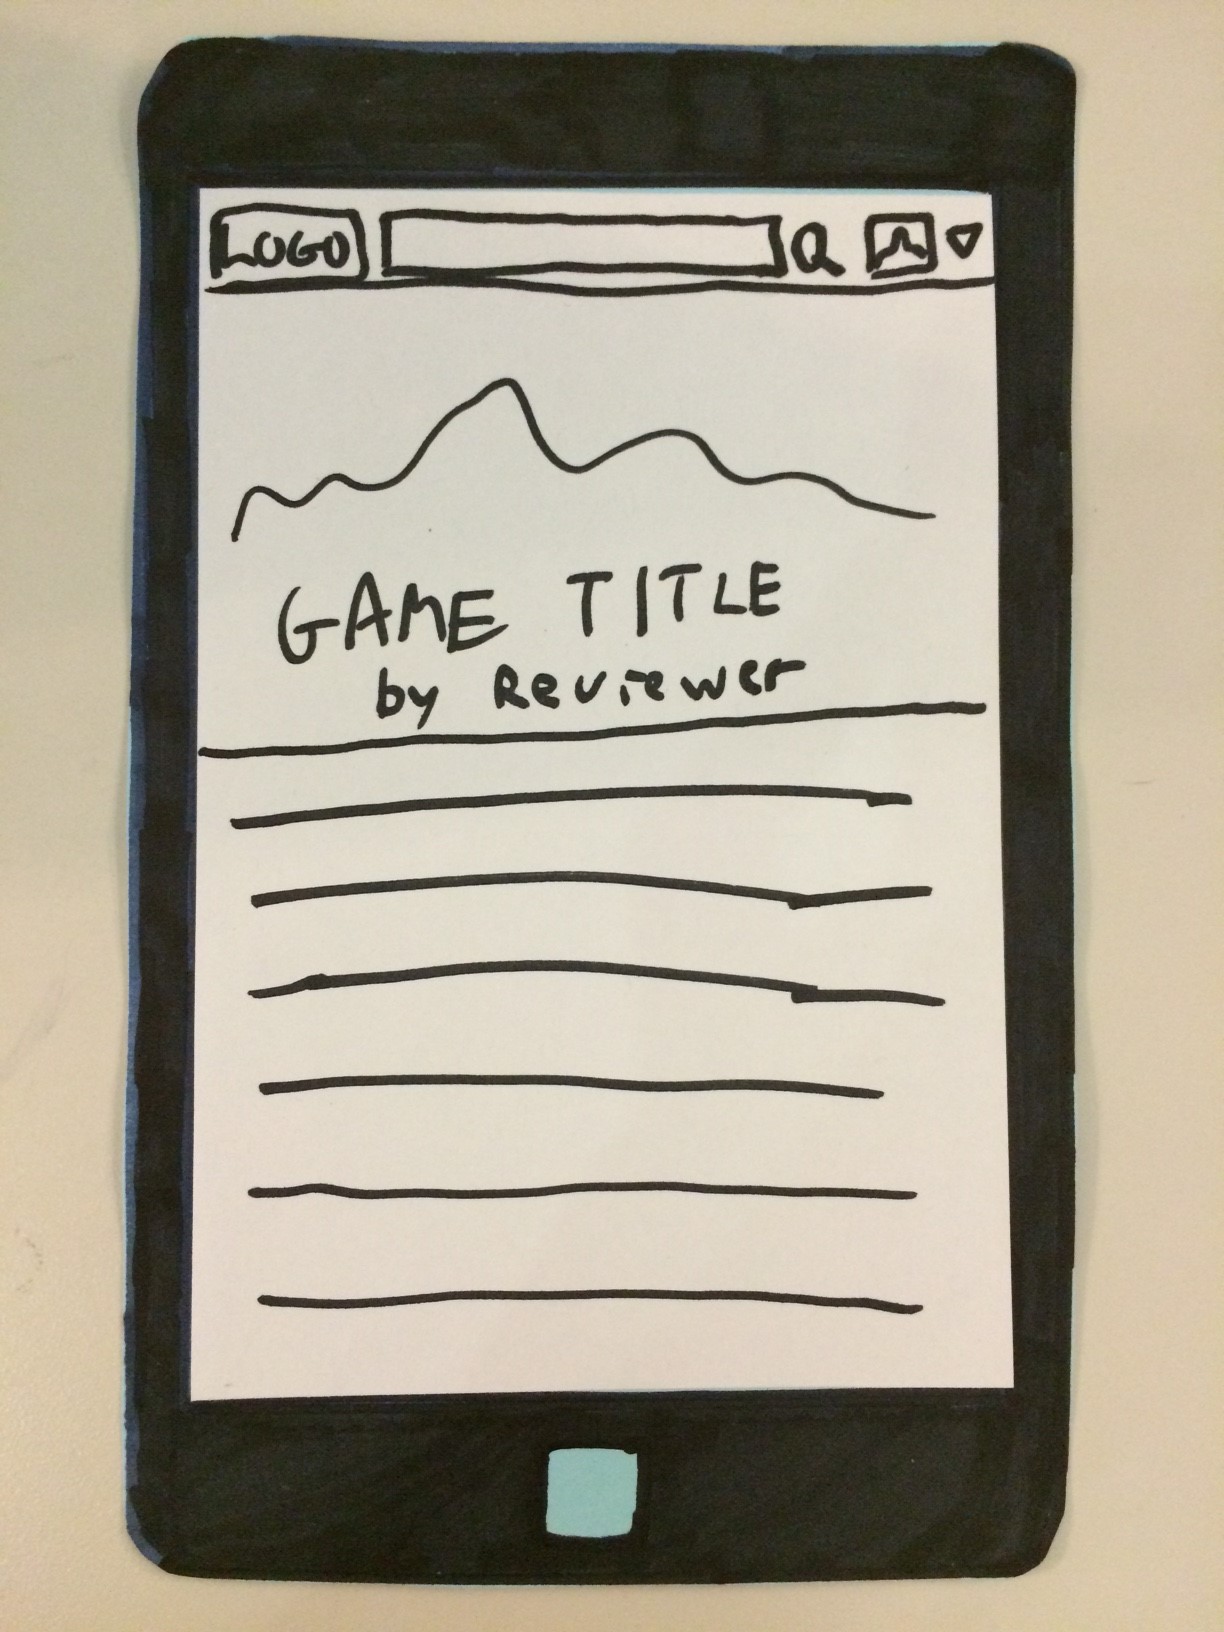 LOGO
GAME TITLE
by Reviewer